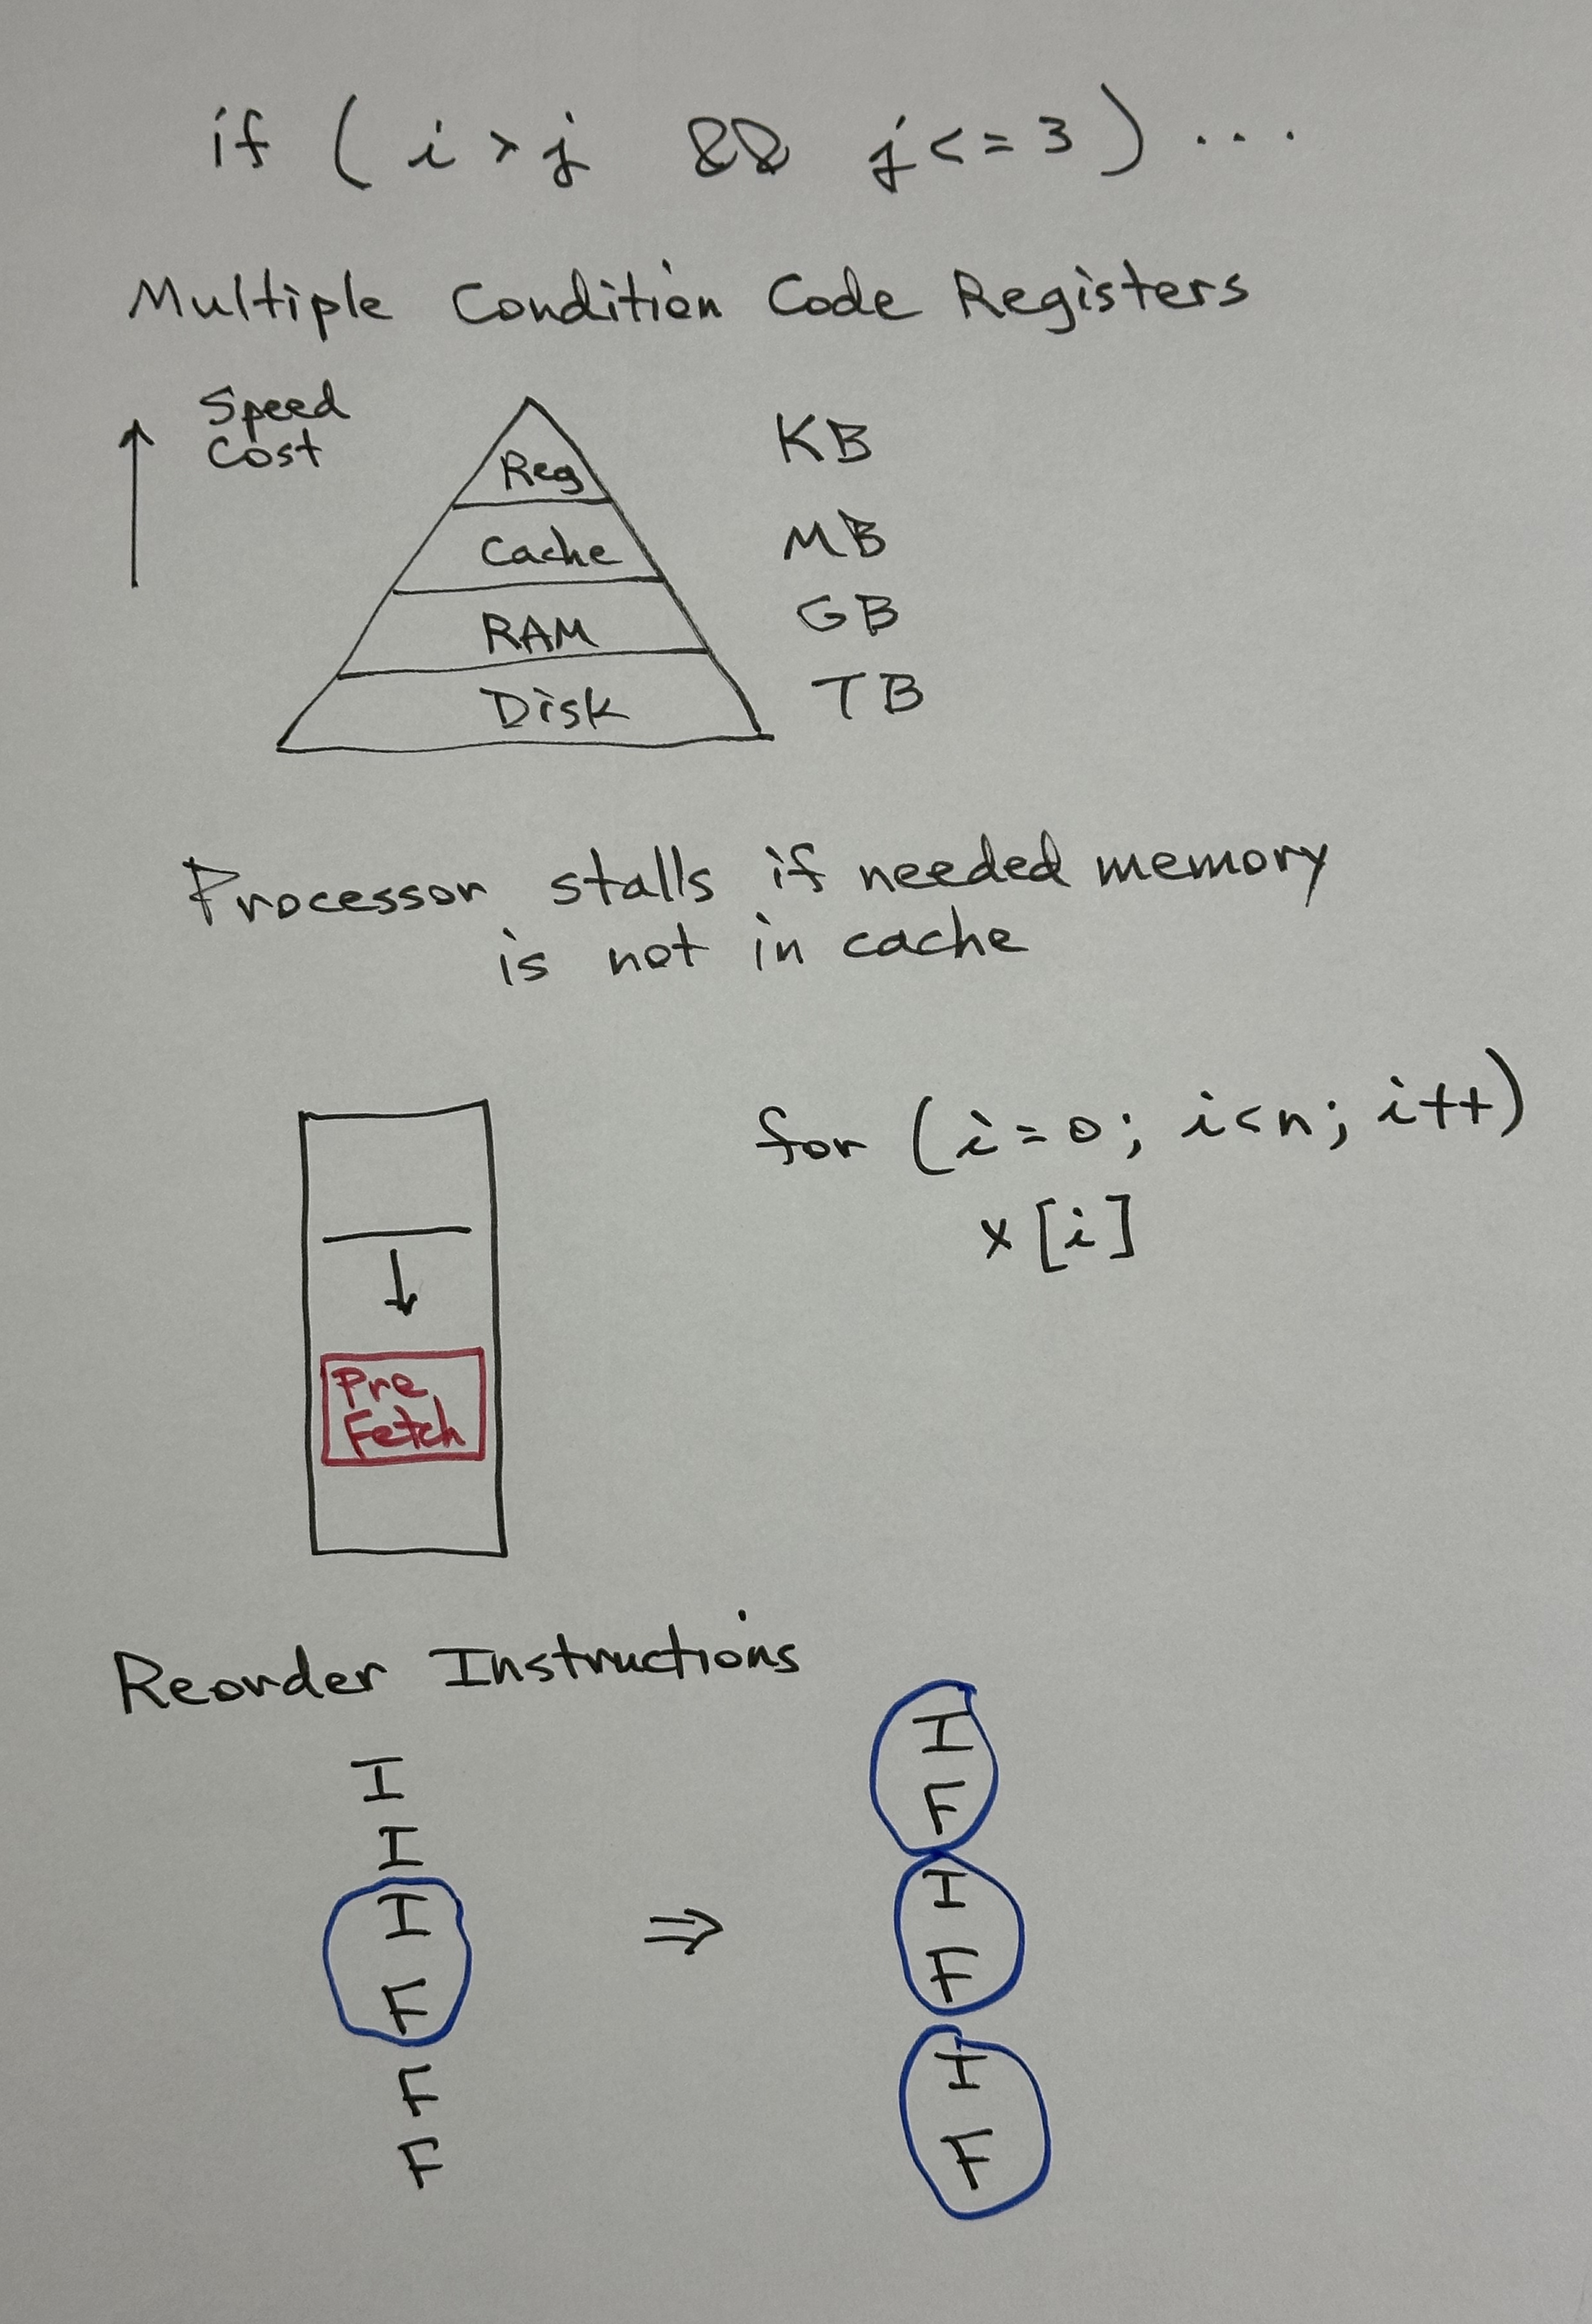 if ( i > j && j <= 3 ) ...
Multiple Condition Code Registers
Speed
Cost
Reg
KB
Cache
MB
RAM
GB
Disk
TB
Processor stalls if needed memory
is not in cache
for (i=0; i<n; i++)
x[i]
Pre
Fetch
Reorder Instructions
I
I
I
F
F
F
⇒
I
F
I
F
I
F